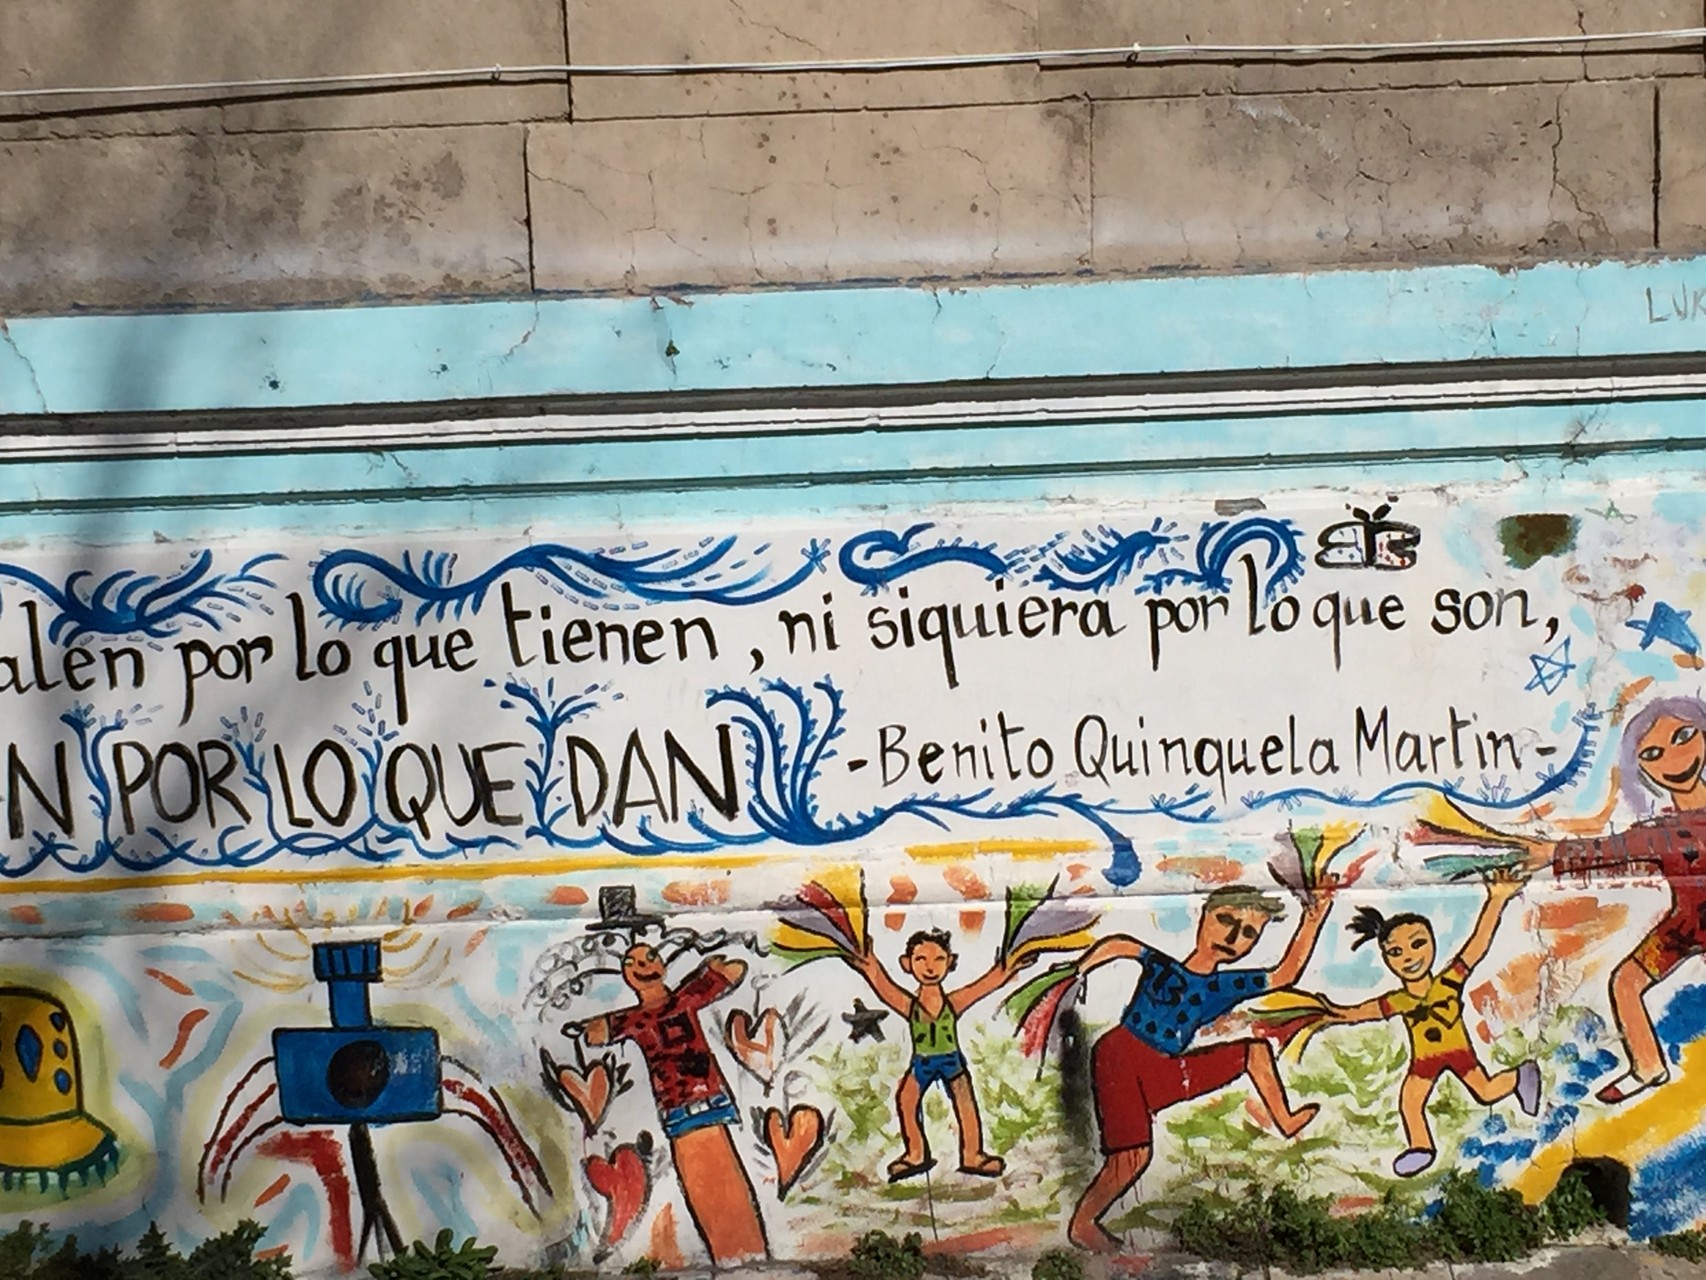 LUK
alen por lo que tienen, ni siquiera por lo que son,
N POR LO QUE DAN -Benito Quinquela Martin-